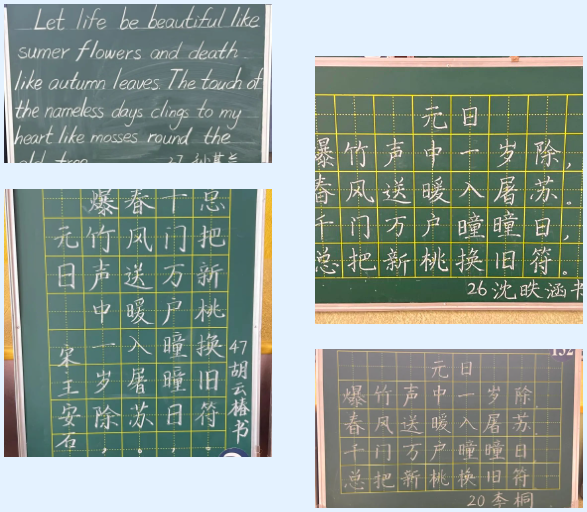 Let life be beautiful like
sumer flowers and death
like autumn leaves. The touch of
the nameless days clings to my
heart like mosses round the
old tree
27
元日 宋王安石
爆竹声中一岁除，
春风送暖入屠苏。
千门万户瞳瞳日，
总把新桃换旧符。
47胡云椿书
元日
爆竹声中一岁除，
春风送暖入屠苏。
千门万户瞳瞳日，
总把新桃换旧符。
26沈昳涵书
132
元日
爆竹声中一岁除，
春风送暖入屠苏。
千门万户瞳瞳日，
总把新桃换旧符。
20李桐